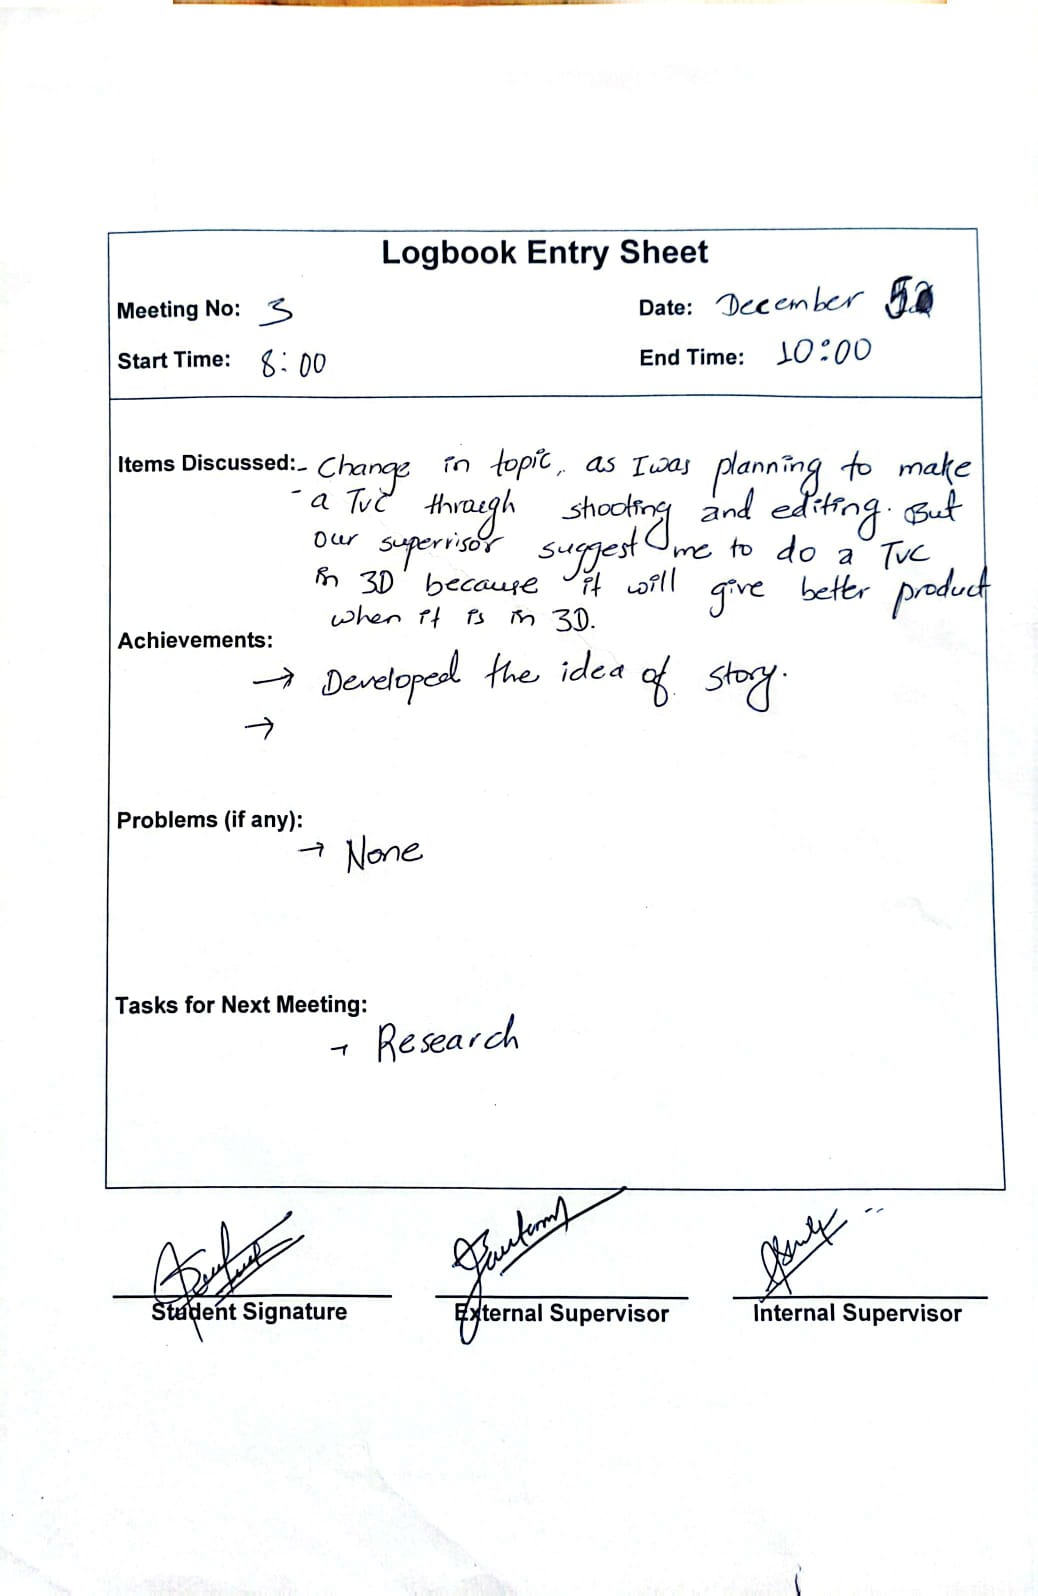 Logbook Entry Sheet
Meeting No: 3
Date: December
Start Time: 8:00
End Time: 10:00
Items Discussed:- Change in topic, as I was planning to make
- a TVC through shooting and editing. But
our supervisor suggest me to do a TVC
in 3D because it will give better product
when it is in 3D.
Achievements:
→ Developed the idea of story.
→
Problems (if any):
→ None
Tasks for Next Meeting:
→ Research
Student Signature
External Supervisor
Internal Supervisor